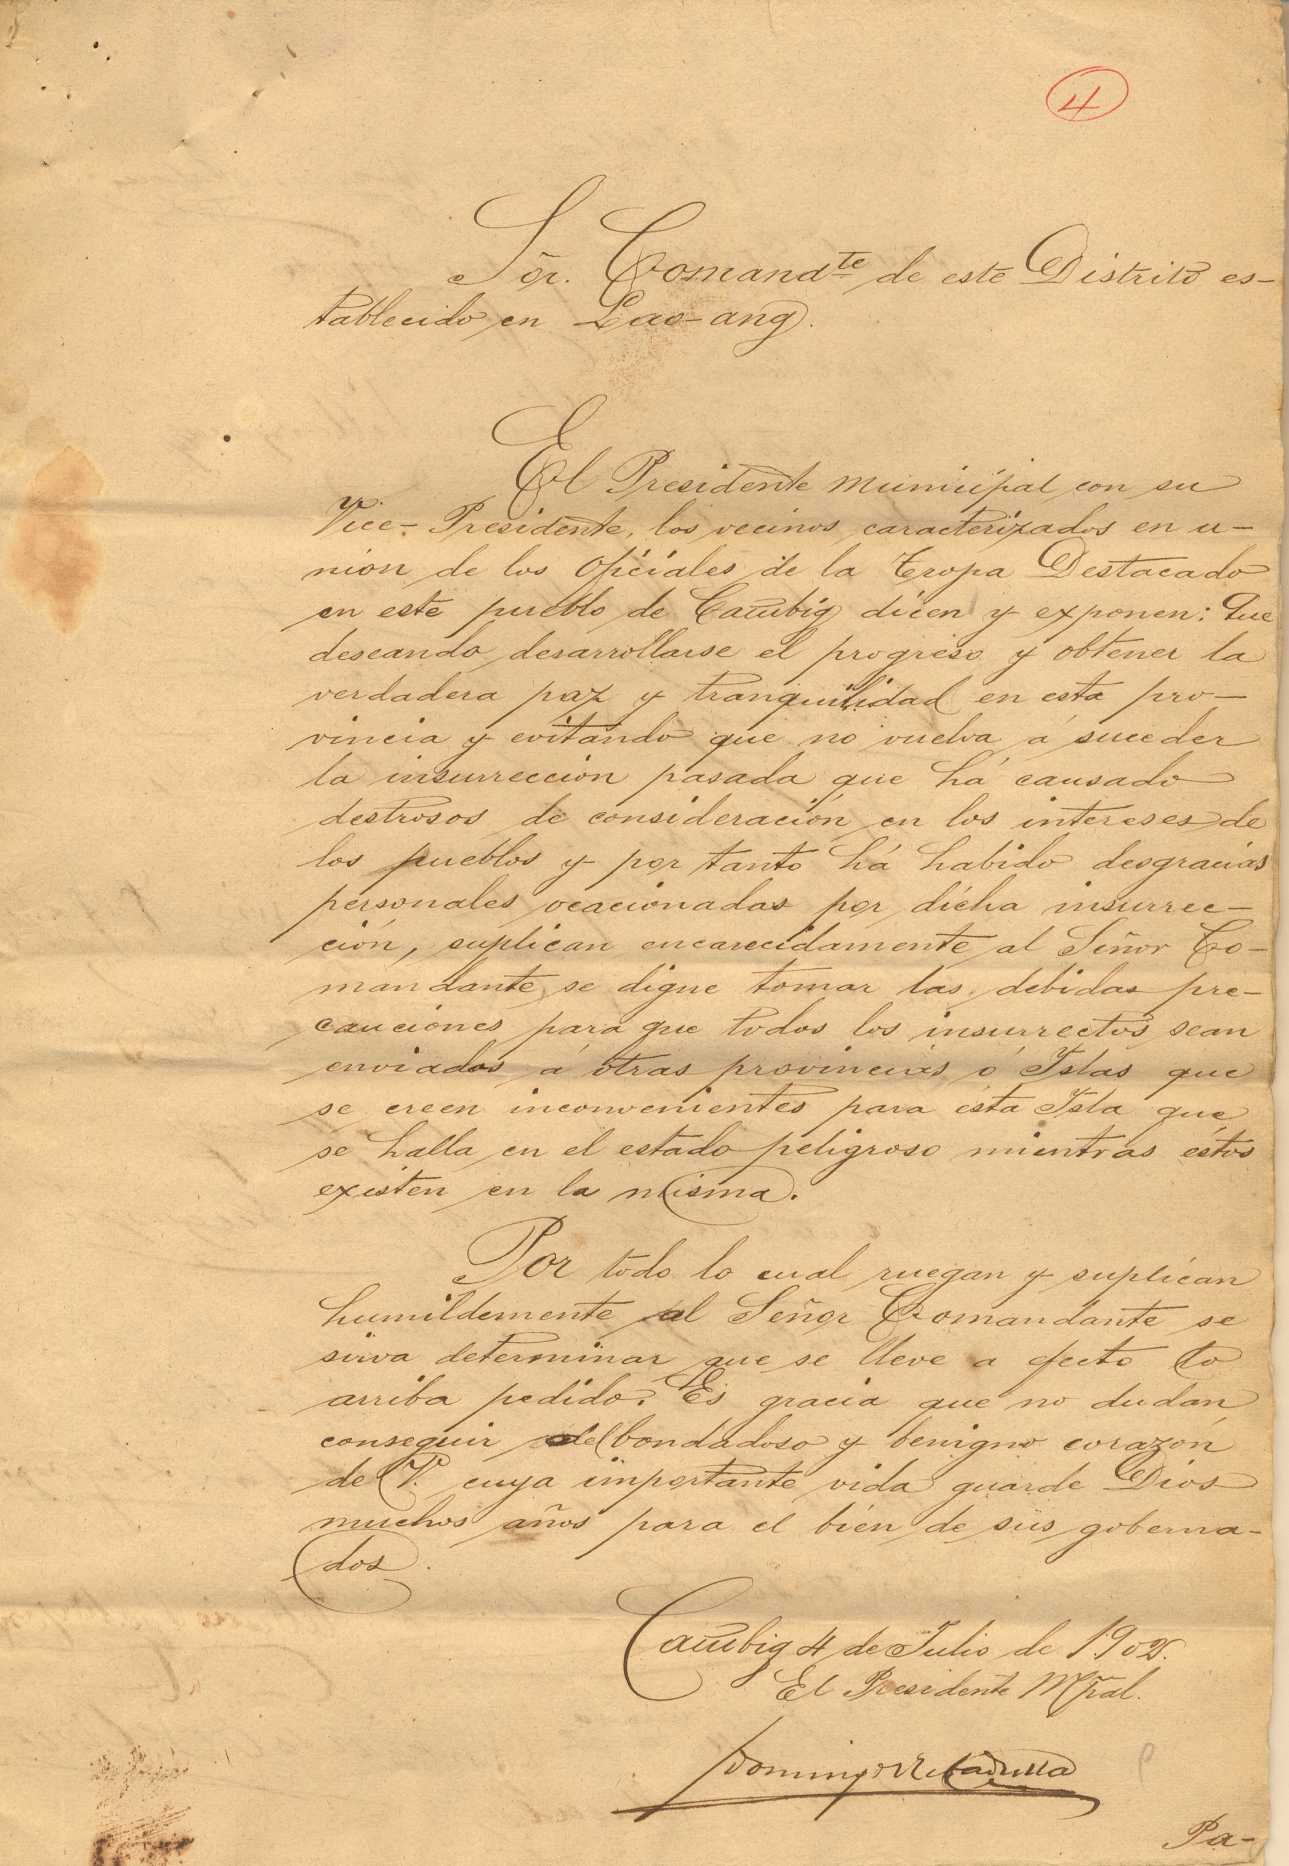 4
Sõr. Comandte de este Distrito es-
tablecido en Lao-ang.
El Presidente Municipal con su
Vice-Presidente, los vecinos caracterizados en u-
nion de los Oficiales de la Tropa Destacado
en este pueblo de Catubig dicen y exponen: Que
deseando desarrollarse el progreso y obtener la
verdadera paz y tranquilidad en esta pro-
vincia y evitando que no vuelva á suceder
la insurreccion pasada que há causado
destrosos de consideración en los intereses de
los pueblos y por tanto há habido desgracias
personales ocacionadas por dicha insurrec-
ción, suplican encarecidamente al Señor Co-
mandante se digne tomar las debidas pre-
cauciones para que todos los insurrectos sean
enviados á otras provincias ó Yslas que
se creen inconvenientes para ésta Ysla que
se halla en el estado peligroso mientras éstos
existen en la misma.
Por todo lo cual ruegan y suplican
humildemente al Señor Comandante se
sirva determinar que se lleve a efecto lo
arriba pedido. Es gracia que no dudan
conseguir del bondadoso y benigno corazón
de V. cuya importante vida guarde Dios
muchos años para el bién de sus goberna-
dos.
Catubig 4 de Julio de 1902.
El Presidente Mpal.
Domingo
Pa-